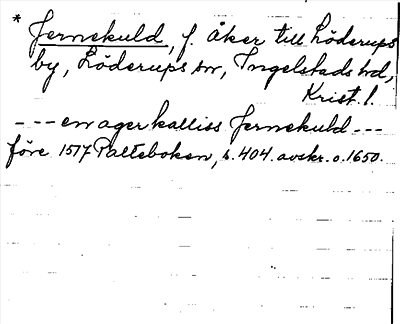 * Jernekuld, f. åker till Löderups
by, Löderups sn, Ingelstads hd,
Krist. l.
--- en ager kalliss Jernekuld ---
före 1577 Palteboken, s. 404. avskr. o. 1650.